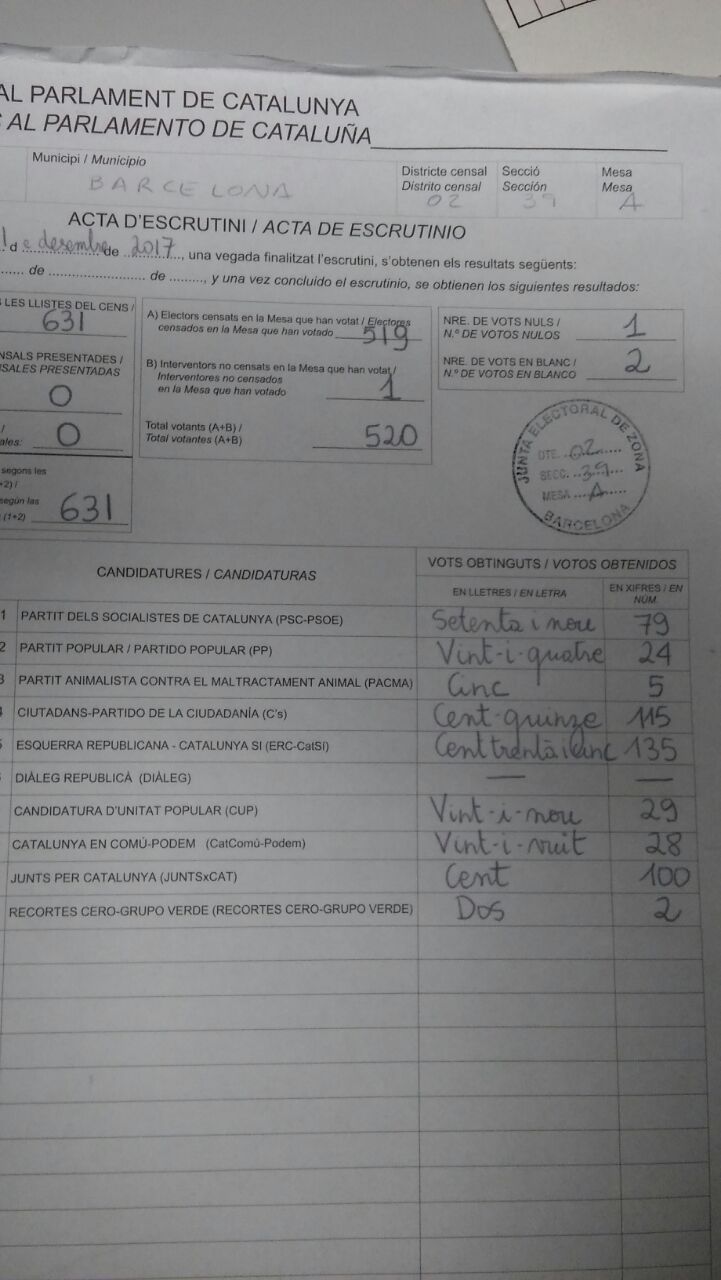 AL PARLAMENT DE CATALUNYA
AL PARLAMENTO DE CATALUÑA
Municipi / Municipio
BARCELONA
Districte censal
Distrito censal
02
Secció
Sección
39
Mesa
Mesa
A
ACTA D'ESCRUTINI / ACTA DE ESCRUTINIO
de desembre de 2017, una vegada finalitzat l'escrutini, s'obtenen els resultats següents:
...... de ...................... de ........., y una vez concluido el escrutinio, se obtienen los siguientes resultados:
LES LLISTES DEL CENS /
631
PRESENTADES /
PRESENTADAS
0
0
segons les
+2) /
según las
(1+2) 631
A) Electors censats en la Mesa que han votat / Electores
censados en la Mesa que han votado 519
B) Interventors no censats en la Mesa que han votat /
Interventores no censados
en la Mesa que han votado 1
Total votants (A+B) /
Total votantes (A+B) 520
NRE. DE VOTS NULS /
N.º DE VOTOS NULOS 1
NRE. DE VOTS EN BLANC /
N.º DE VOTOS EN BLANCO 2
JUNTA ELECTORAL DE ZONA
DTE. 02
SECC. 39
MESA A
BARCELONA
CANDIDATURES / CANDIDATURAS
VOTS OBTINGUTS / VOTOS OBTENIDOS
EN LLETRES / EN LETRA
EN XIFRES / EN
NÚM.
1 PARTIT DELS SOCIALISTES DE CATALUNYA (PSC-PSOE) Setenta i nou 79
PARTIT POPULAR / PARTIDO POPULAR (PP) Vint-i-quatre 24
PARTIT ANIMALISTA CONTRA EL MALTRACTAMENT ANIMAL (PACMA) Cinc 5
CIUTADANS-PARTIDO DE LA CIUDADANÍA (C's) Cent-quinze 115
ESQUERRA REPUBLICANA - CATALUNYA SI (ERC-CatSI) Cent trenta i cinc 135
DIÀLEG REPUBLICÀ (DIÀLEG) — —
CANDIDATURA D'UNITAT POPULAR (CUP) Vint-i-nou 29
CATALUNYA EN COMÚ-PODEM (CatComú-Podem) Vint-i-vuit 28
JUNTS PER CATALUNYA (JUNTSxCAT) Cent 100
RECORTES CERO-GRUPO VERDE (RECORTES CERO-GRUPO VERDE) Dos 2